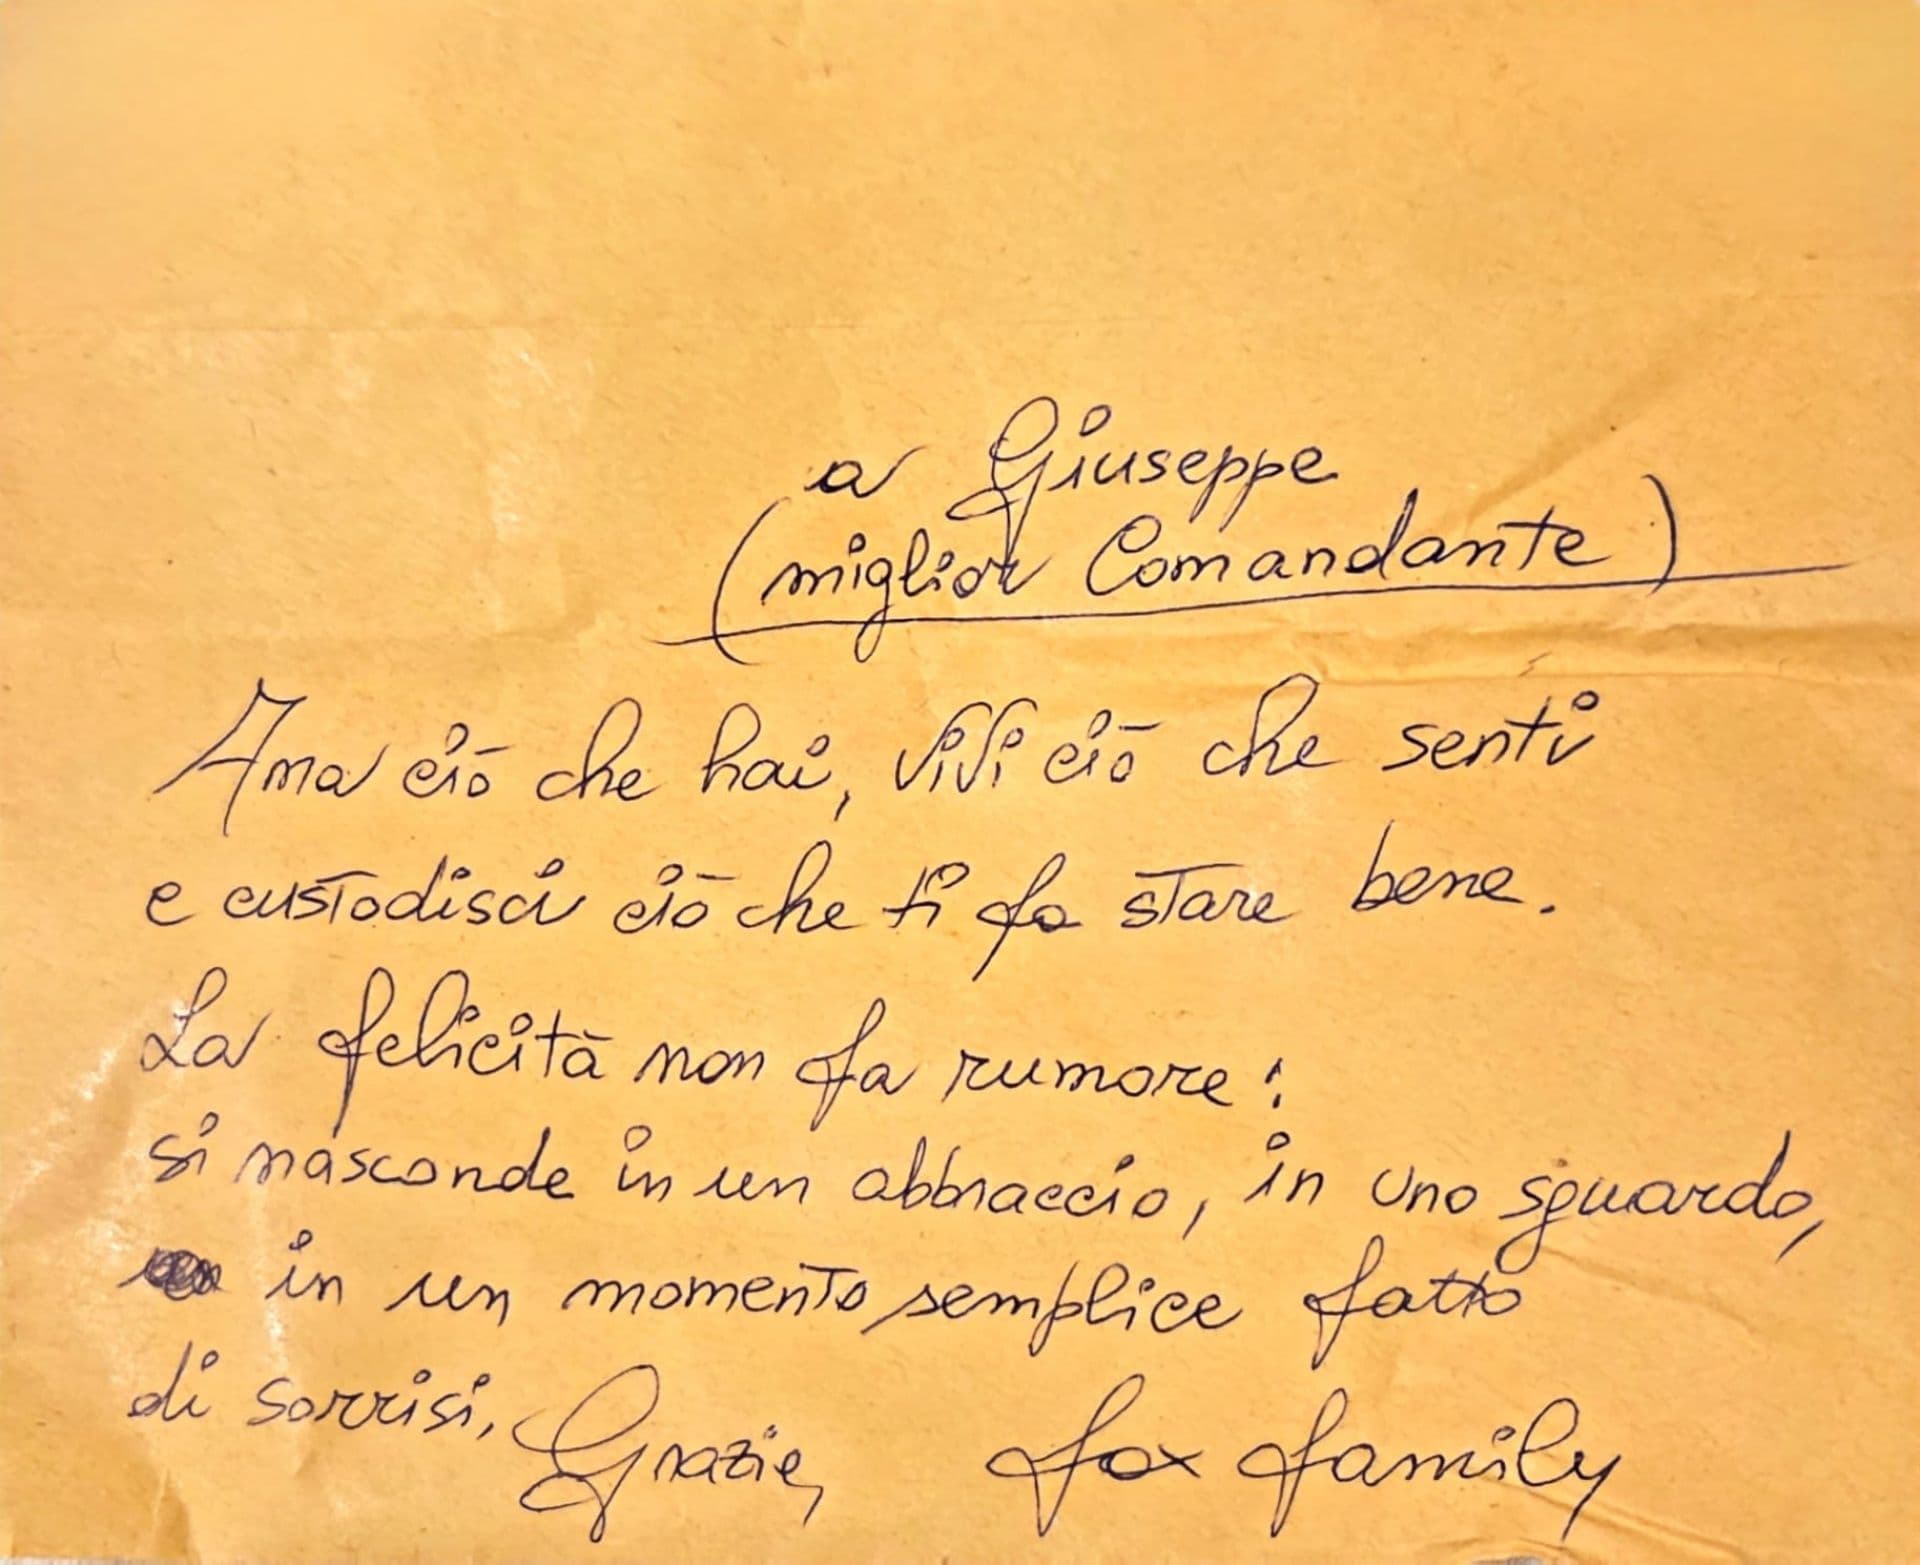 a Giuseppe
(miglior Comandante)
Ama ciò che hai, vivi ciò che senti
e custodisci ciò che ti fa stare bene.
La felicità non fa rumore:
si nasconde in un abbraccio, in uno sguardo,
in un momento semplice fatto
di sorrisi, Grazie, fox family